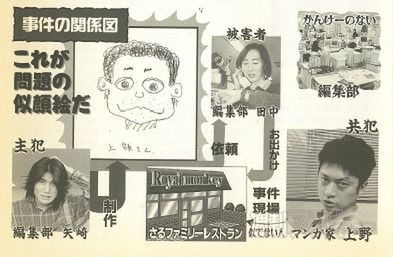 事件の関係図
これが
問題の
似顔絵だ
上野さん
被害者
編集部 田中
かんけーのない
編集部
主犯
編集部 矢崎
制作
依頼
お出かけ
Royal monkey
さるファミリーレストラン
事件
現場
共犯
マンガ家 上野